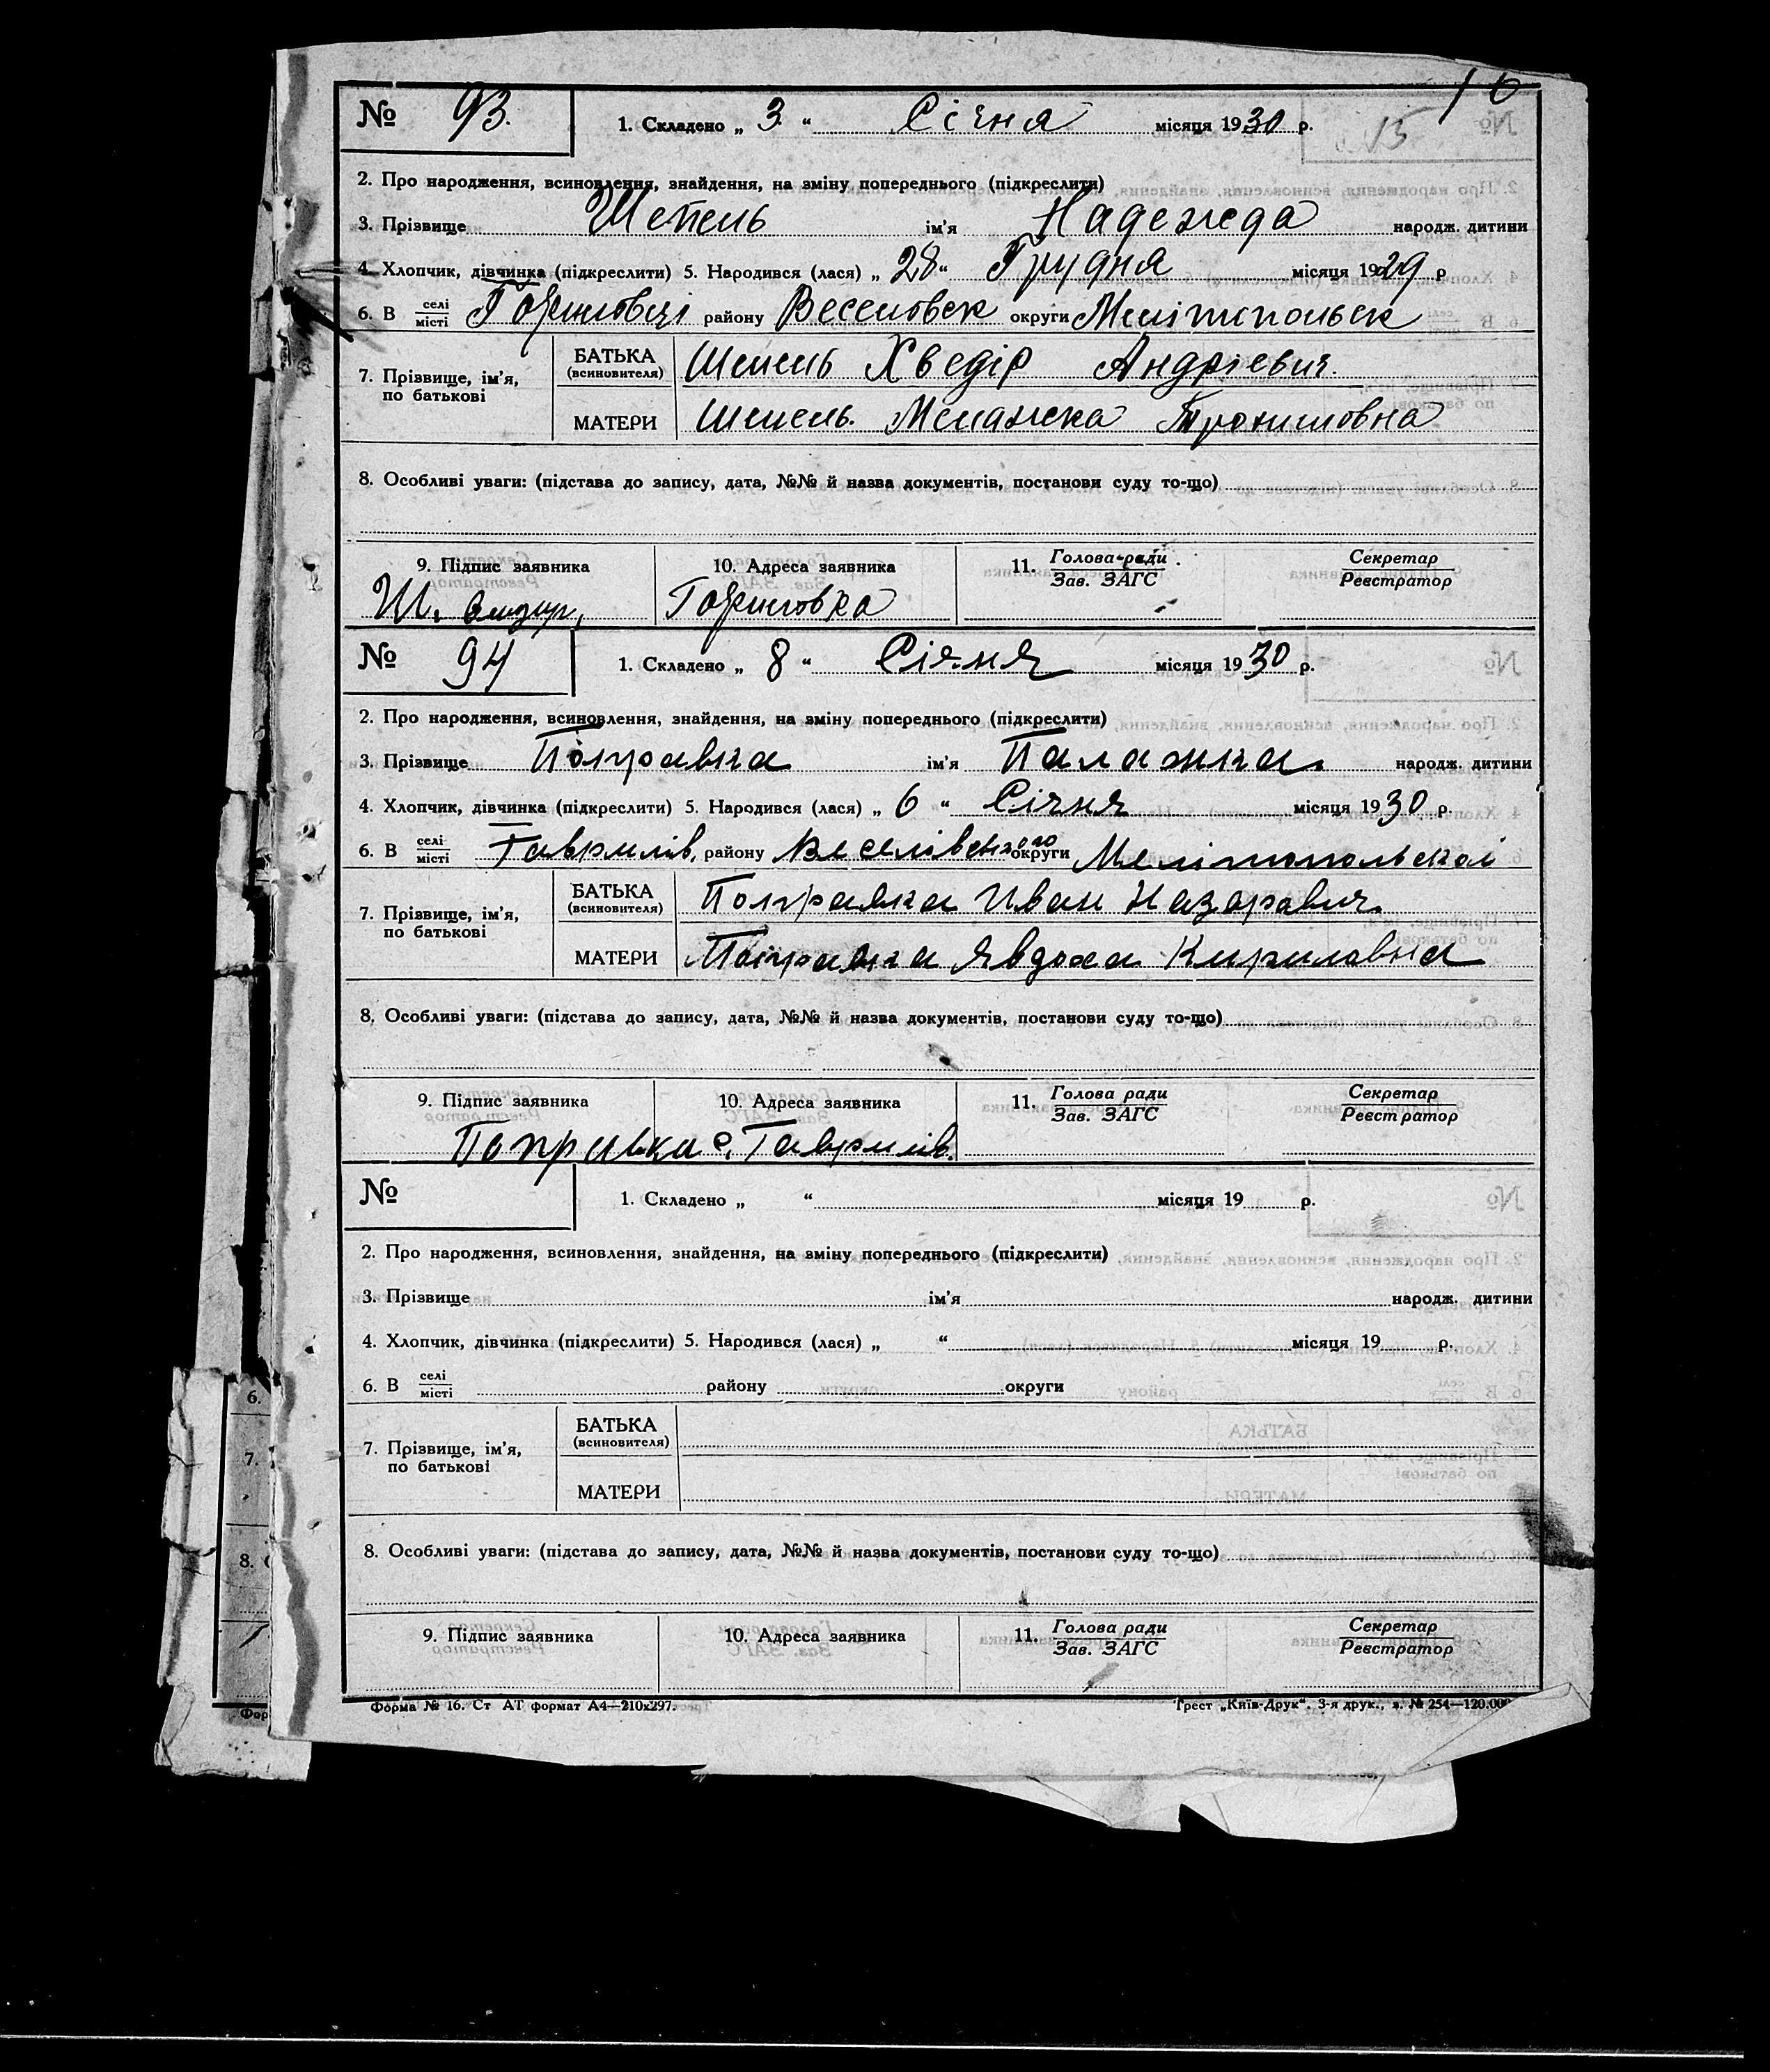 10
№ 93. 1. Складено „ 3 “ Січня місяця 1930 р.
15
2. Про народження, всиновлення, знайдення, на зміну попереднього (підкреслити)
3. Прізвище Шепель ім'я Надежда народж. дитини
4. Хлопчик, дівчинка (підкреслити) 5. Народився (лася) „ 28 “ Грудня місяця 1929 р
6. В селі/місті району Веселовск округи Мелітопольск
7. Прізвище, ім'я, по батькові
БАТЬКА (всиновителя) Шепель Хведір Андрієвич.
МАТЕРИ Шепель. Меланжка
8. Особливі уваги: (підстава до запису, дата, №№ й назва документів, постанови суду то-що)
9. Підпис заявника 10. Адреса заявника 11. Голова ради/Зав. ЗАГС Секретар/Реєстратор
№ 94 1. Складено „ 8 “ Січня місяця 1930 р.
2. Про народження, всиновлення, знайдення, на зміну попереднього (підкреслити)
3. Прізвище Поправка ім'я Палажка. народж. дитини
4. Хлопчик, дівчинка (підкреслити) 5. Народився (лася) „ 6 “ Січня місяця 1930 р.
6. В селі/місті Гаврилів. району Веселівского округи Мелітопольскої
7. Прізвище, ім'я, по батькові
БАТЬКА (всиновителя) Поправка Иван Назаравич.
МАТЕРИ Поправка Явдоха Кирилавна
8. Особливі уваги: (підстава до запису, дата, №№ й назва документів, постанови суду то-що)
9. Підпис заявника 10. Адреса заявника 11. Голова ради/Зав. ЗАГС Секретар/Реєстратор
Поправка с. Гаврилів.
№ 1. Складено „ “ місяця 19 р.
2. Про народження, всиновлення, знайдення, на зміну попереднього (підкреслити)
3. Прізвище ім'я народж. дитини
4. Хлопчик, дівчинка (підкреслити) 5. Народився (лася) „ “ місяця 19 р.
6. В селі/місті району округи
7. Прізвище, ім'я, по батькові
БАТЬКА (всиновителя)
МАТЕРИ
8. Особливі уваги: (підстава до запису, дата, №№ й назва документів, постанови суду то-що)
9. Підпис заявника 10. Адреса заявника 11. Голова ради/Зав. ЗАГС Секретар/Реєстратор
Форма № 16. Ст АТ формат А4—210х297. Трест „Київ-Друк“. 3-я друк., з. № 254—120.000